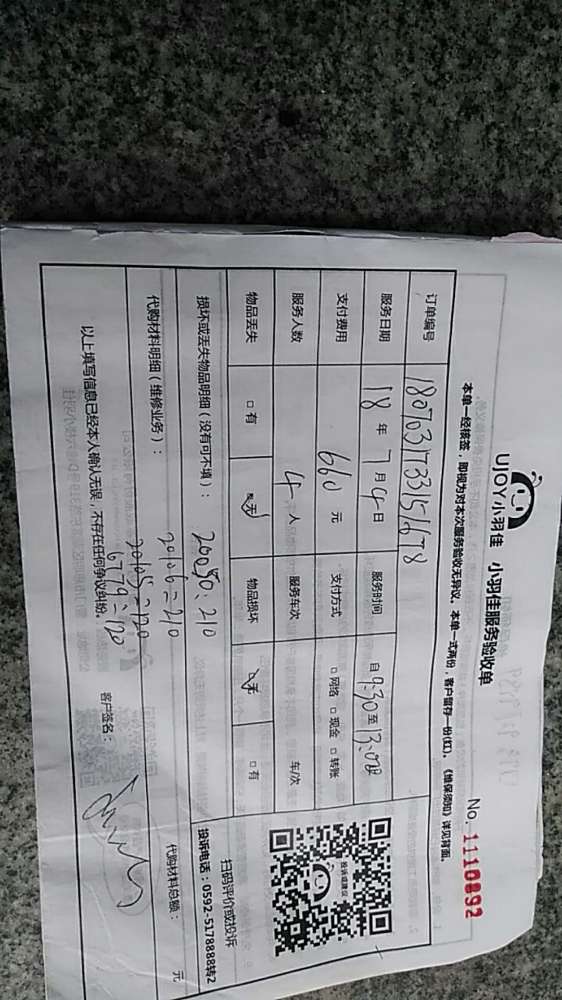 UJOY小羽佳 小羽佳服务验收单
No. 1110892
本单一经核签，即视为对本次服务验收无异议。本单一式两份，客户留存一份(红)。《维保须知》详见背面。
订单编号 1807031733151678
服务日期 18 年 7 月 4 日 服务时间 自 9:30 至 13:00
支付费用 660 元 支付方式 □ 网络 □ 现金 □ 转账
服务人数 4 人 服务车次 车/次
物品丢失 □ 有 □ 无 物品损坏 □ 无 □ 有
投诉或建议
扫码评价或投诉
投诉电话：0592-5178888转2
损坏或丢失物品明细（没有可不填）：
代购材料明细（维修业务）： 代购材料总额： 元
20106=210
20105=120
6779=120
以上填写信息已经本人确认无误，不存在任何争议纠纷。 客户签名：